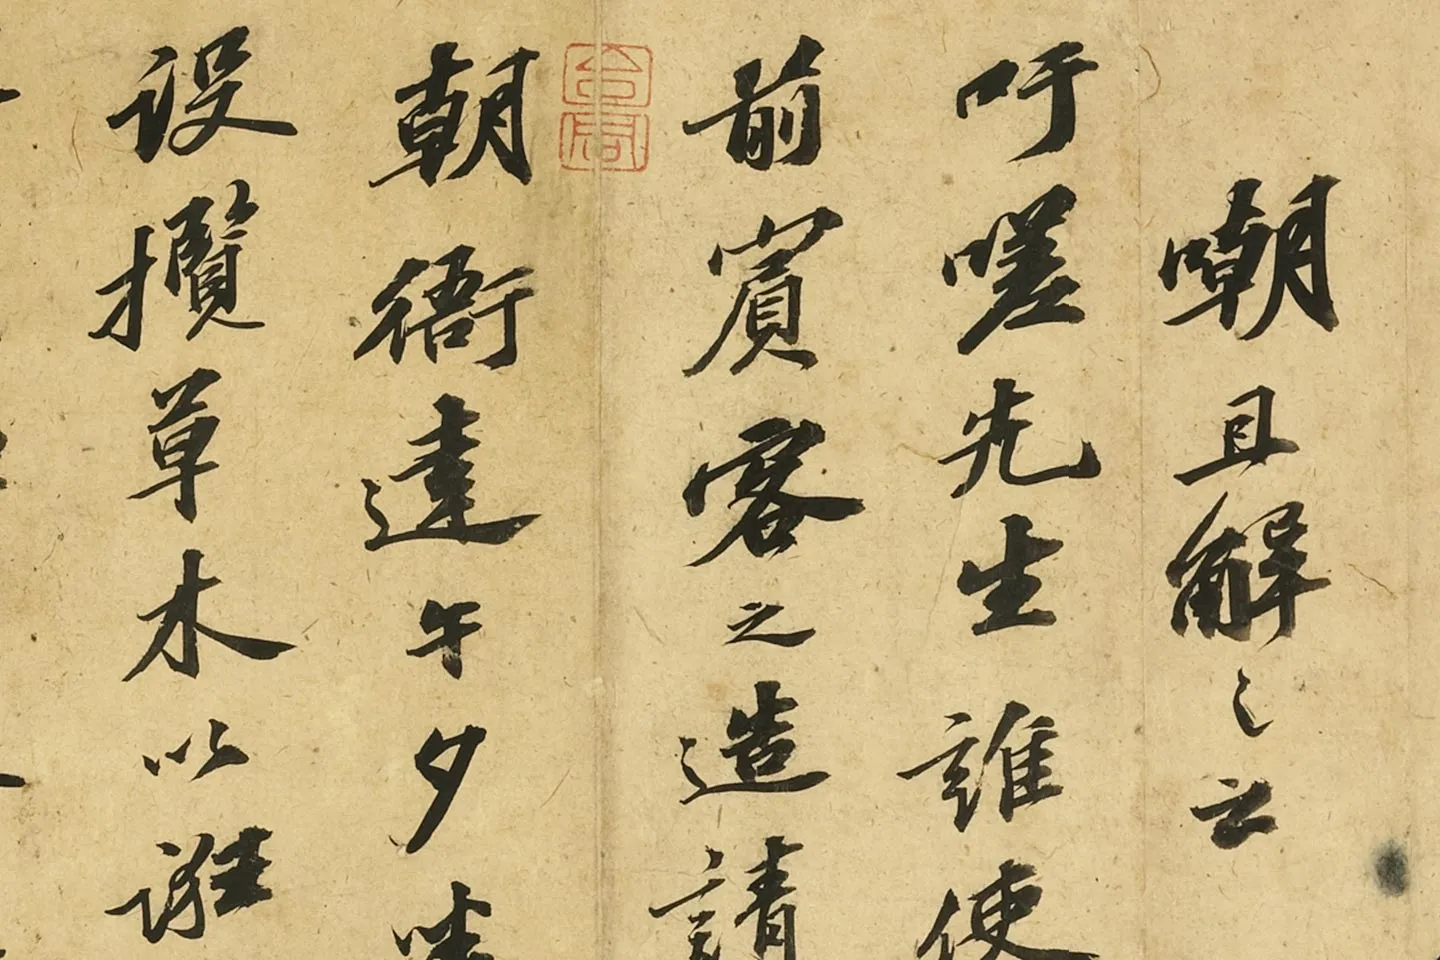 嘲且解之云
吁嗟先生誰使
前賓客之造請
朝衙達午夕坐
設攬草木以誑